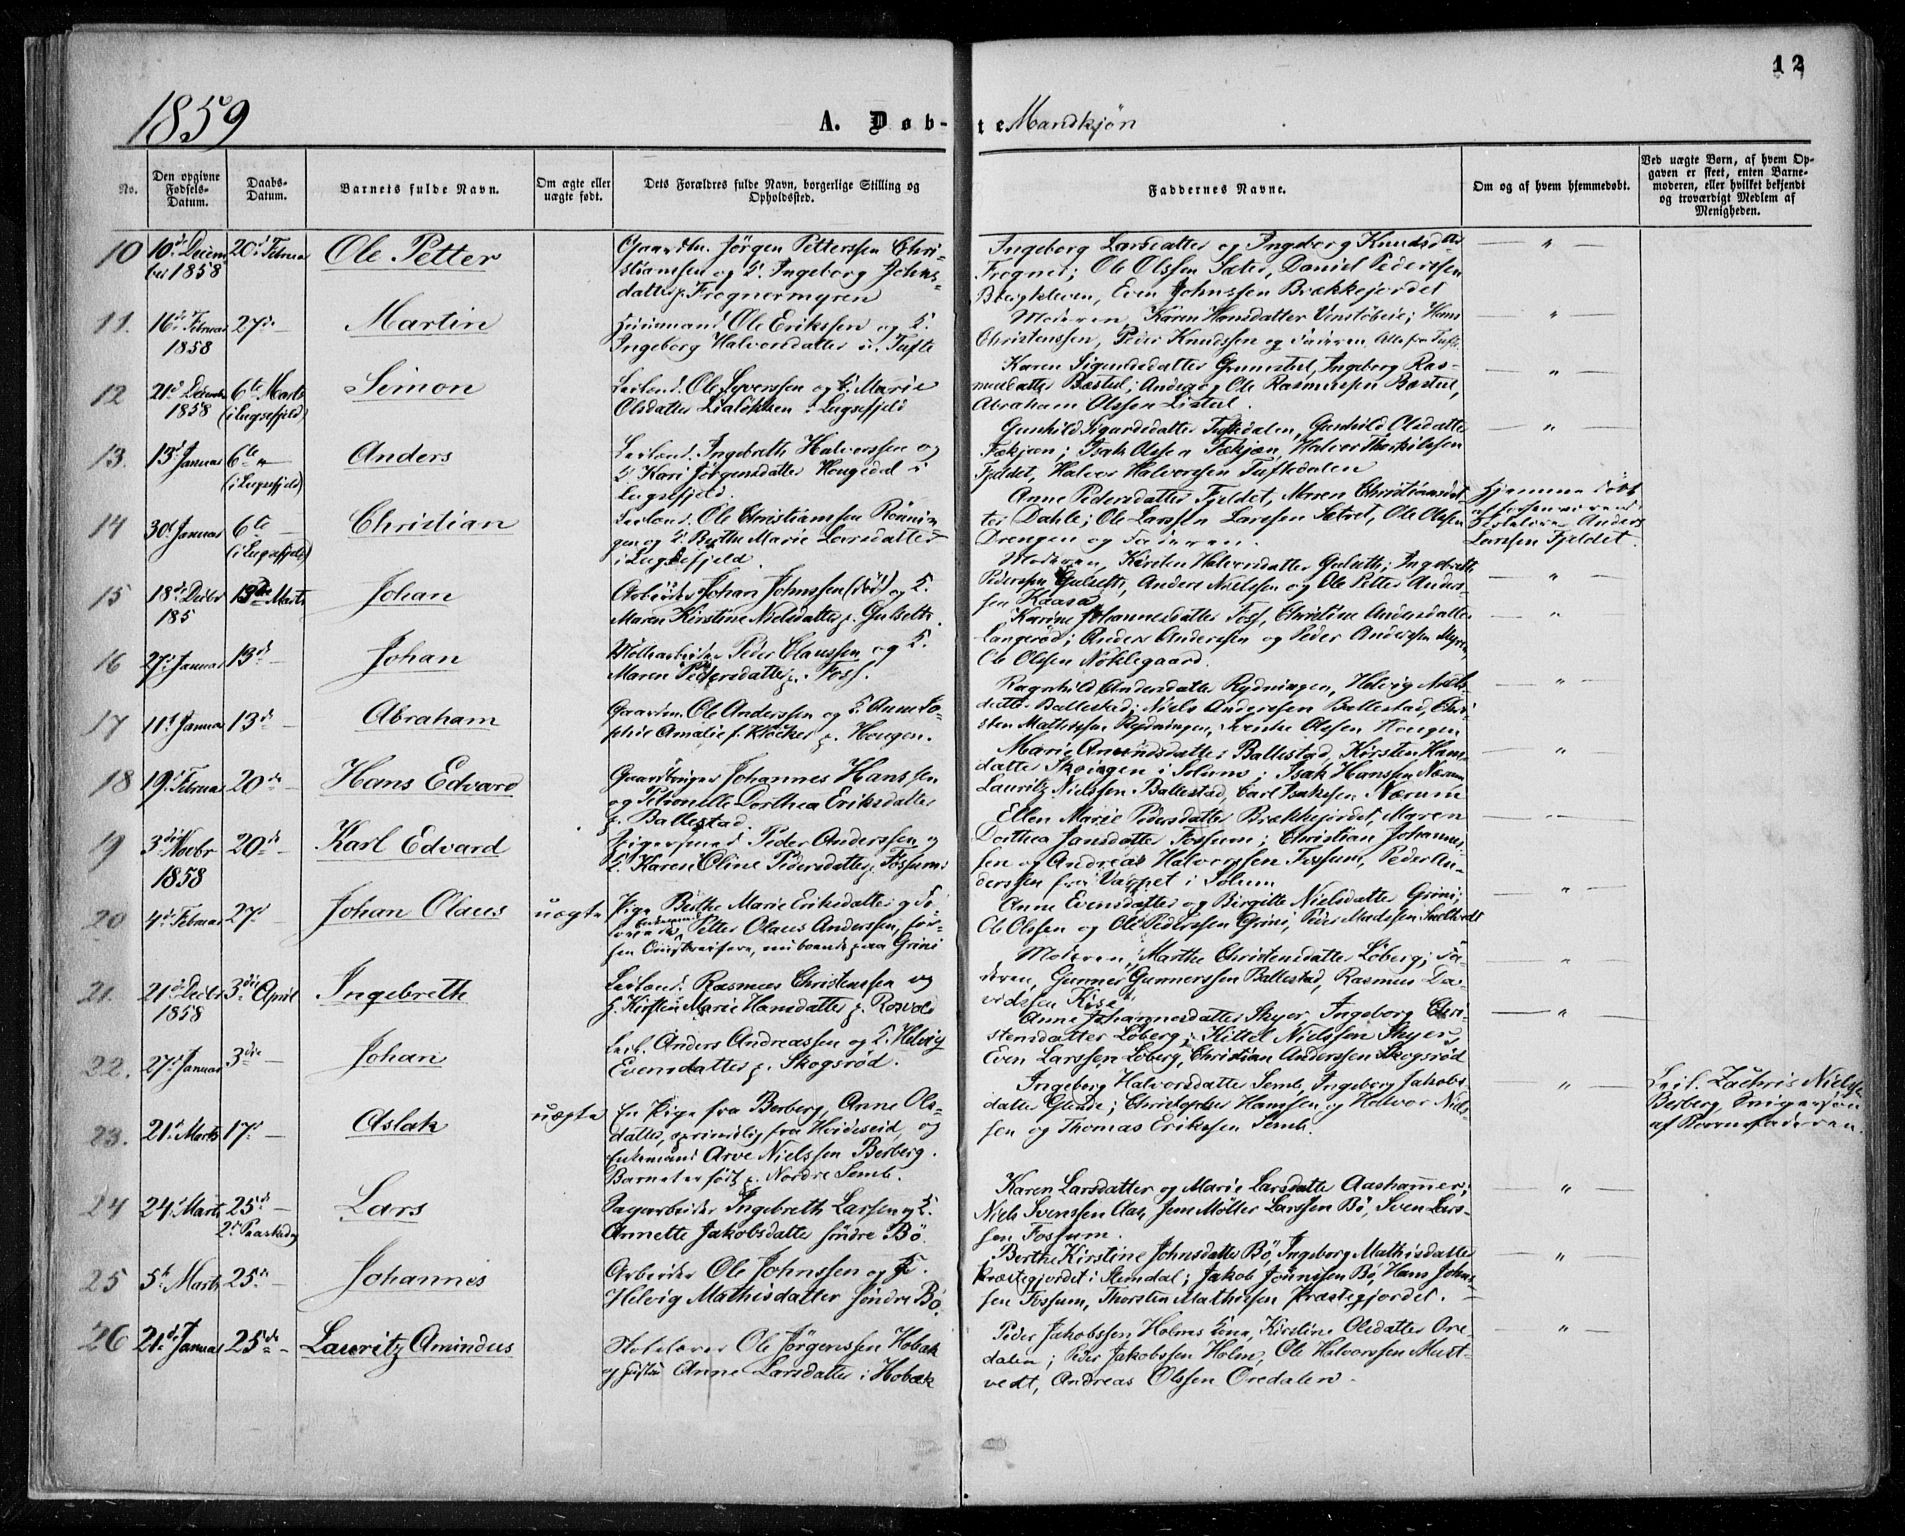 12
1859
A. Døb-te Mandkjøn
No.
Den opgivne Fødsels-Datum.
Daabs-Datum.
Barnets fulde Navn.
Om ægte eller uægte født.
Dets Forældres fulde Navn, borgerlige Stilling og Opholdssted.
Faddernes Navne.
Om og af hvem hjemmedøbt.
Ved uægte Børn, af hvem Opgaven er skeet, enten Barnemoderen, eller hvilket bekjendt og troværdigt Medlem af Menigheden.
10 10de Decem 20de Februar Ole Petter Gaardbr. Jørgen Petterssen Chri-
ber 1858 stianssen og K. Ingeborg Johns-
datter p. Frognermyren
Ingeborg Larsdatter og Ingeborg Knudsdtr
Frogner; Ole Olssen Sæter, Daniel Pederssen
Bergkleven, Even Johnssen Brækkejordet
11. 16de Februar 27de Martin Ole Erikssen og K.
1858 Ingeborg Halvorsdatter i Tufte
Moderen, Karen Hansdatter Venstøbeie; Hans
Christenssen, Peder Knudssen og Faderen, Alle fra Tufte
12 21de Decembr 6te Marts Simon Leilænd. Ole Syverssen og K. Marie
1858 (i Luksefjeld) Olsdatter Lialøkken i Lugsefjeld
Karen Sigurdsdatter Grimstul, Ingeborg Ras-
musdatter Bæstul; Anders og Ole Rasmussen Bæstul,
Abraham Olssen Listul.
13. 13de Januar 6te Anders Leilænd. Ingebreth Halvorssen og
(i Lugsefjeld) K. Kari Jørgensdatter Hougedal i
Lugsefjeld.
Gunhild Sigurdsdatter Tuftedalen, Gunhild Olsdatter
Fækjæn; Isak Olssen Fækjæn, Halvor Therkilssen
Fjeldet, Halvor Halvorssen Tuftedalen
14 30de Januar 6te Christian Leilænd. Ole Christianssen Rønnin-
(i Lugsefjeld) gen og K. Berthe Marie Larsdatter
i Lugsefjeld.
Anne Pedersdatter Fjeldet, Maren Christiansdat-
ter Dahle; Ole Larssen Larssen Sætret, Ole Olssen
Drengen og Faderen.
Hjemmedøbt
af
Anders
Larssen Fjeldet.
15 18de Decbr 13de Marts Johan Arbeider Johan Johnssen (død) og K.
185 Maren Kirstine Nielsdatter p. Gulseth.
Moderen, Kirsten Halvorsdatter Gulseth; Ingebreth
Pederssen Gulseth, Anders Nielssen og Ole Petter Anders-
sen Kaasa
16 27de Januar 13de Johan Møllearbeider Peder Claussen og K.
Maren Pedersdatter p. Foss.
Karine Johannesdatter Foss, Christine Andersdatter
Langerød; Anders Anderssen og Peder Anderssen Myre,
Ole Olssen Nøklegaard.
17 11te Januar 13de Abraham Gaardm. Ole Anderssen og K. Anne So-
phie Amalie f. Kløcker p. Hougen.
Ragnhild Andersdatter Rydningen, Helvig Niels-
datter Ballestad; Niels Anderssen Ballestad, Chri-
sten Mathissen Rydningen, Olssen Hougen
18 19de Februar 20de Hans Edvard Gaardbruger Johannes Hanssen
og Petronelle Dorthea Eriksdatter
p. Ballestad
Marie Amundsdatter Ballestad, Kirsten Hans-
datter Skougen i Solum; Isak Hanssen Nærum
Lauritz Nielssen Ballestad, Carl Isakssen Nærum
19 3die Novbr 20de Karl Edvard Peder Anderssen og
1858 K. Karen Oline Pedersdatter Fossum.
Ellen Marie Pedersdatter Brækkejordet, Maren
Dorthea Jansdatter Fossum; Christian Johannes-
sen og Andreas Halvorssen Fossum, Peder An-
derssen fra Varpet i Solum
20 4de Februar 27de Johan Olaus uægte Pige Berthe Marie Eriksdatter og
Petter Olaus Anderssen, nu boende paa Grini
Anne Evensdatter og Birgitte Nielsdatter Grini;
Ole Olssen og Ole Pederssen Grini, Peder Madssen Smelhvedt
21. 21de Decbr 3die April Ingebreth Leilænd. Rasmus Christenssen og
1858 K. Kirsten Marie Hansdatter p. Rosvold
Moderen, Marthe Christensdatter Løberg; Fa-
deren, Gunner Gunnerssen Ballestad, Rasmus Da-
vidssen Kise
22. 27de Januar 3die Johan Leil. Anders Andreassen og K. Helvig
Evensdatter p. Skogsrød.
Anne Johannesdatter Skyer, Ingeborg Chri-
stensdatter Løberg; Kittel Nielssen Skyer,
Even Larssen Løberg, Christian Anderssen Skogsrød
23. 21de Marts 17de Aslak uægte En Pige fra Berberg, Anne Ols-
datter, oprindelig fra Hvideseid, og
Enkemand Arve Nielssen Berberg.
Barnet er født p. Nordre Semb.
Ingeborg Halvorsdatter Semb, Ingeborg Jakobs-
datter Glende; Christopher Hanssen og Halvor Niels-
sen og Thomas Erikssen Semb.
Leil. Zachris Nielssen
Berberg,
af Barnefaderen.
24 24de Marts 25de Lars Sagarbeider Ingebreth Larssen og K.
2den Paaskedag Annette Jakobsdatter søndre Bø.
Karen Larsdatter og Marie Larsdatter Aashammer;
Niels Svenssen Aas, Jens Møller Larssen Bø, Sven Lars-
sen Fossum.
25 5te Marts 25de Johannes Arbeider Ole Johnssen og K.
Helvig Mathisdatter søndre Bø.
Berthe Kirstine Johnsdatter Bø, Ingeborg Mathisdatter
Præstegjordet i Slemdal; Jakob Jørnssen Bø, Hans Johns-
sen Fossum, Thorsten Mathissen Præstegjordet.
26 21de Januar 25de Lauritz Amindus Skolelærer Ole Jørgenssen Hobæk
og Hustru Anne Larsdatter i Hobæk
Peder Jakobssen Holms Kone, Kirstine Olsdatter Ore-
dalen; Peder Jakobssen Holm, Ole Halvorssen Must-
vedt, Andreas Olssen Oredalen.